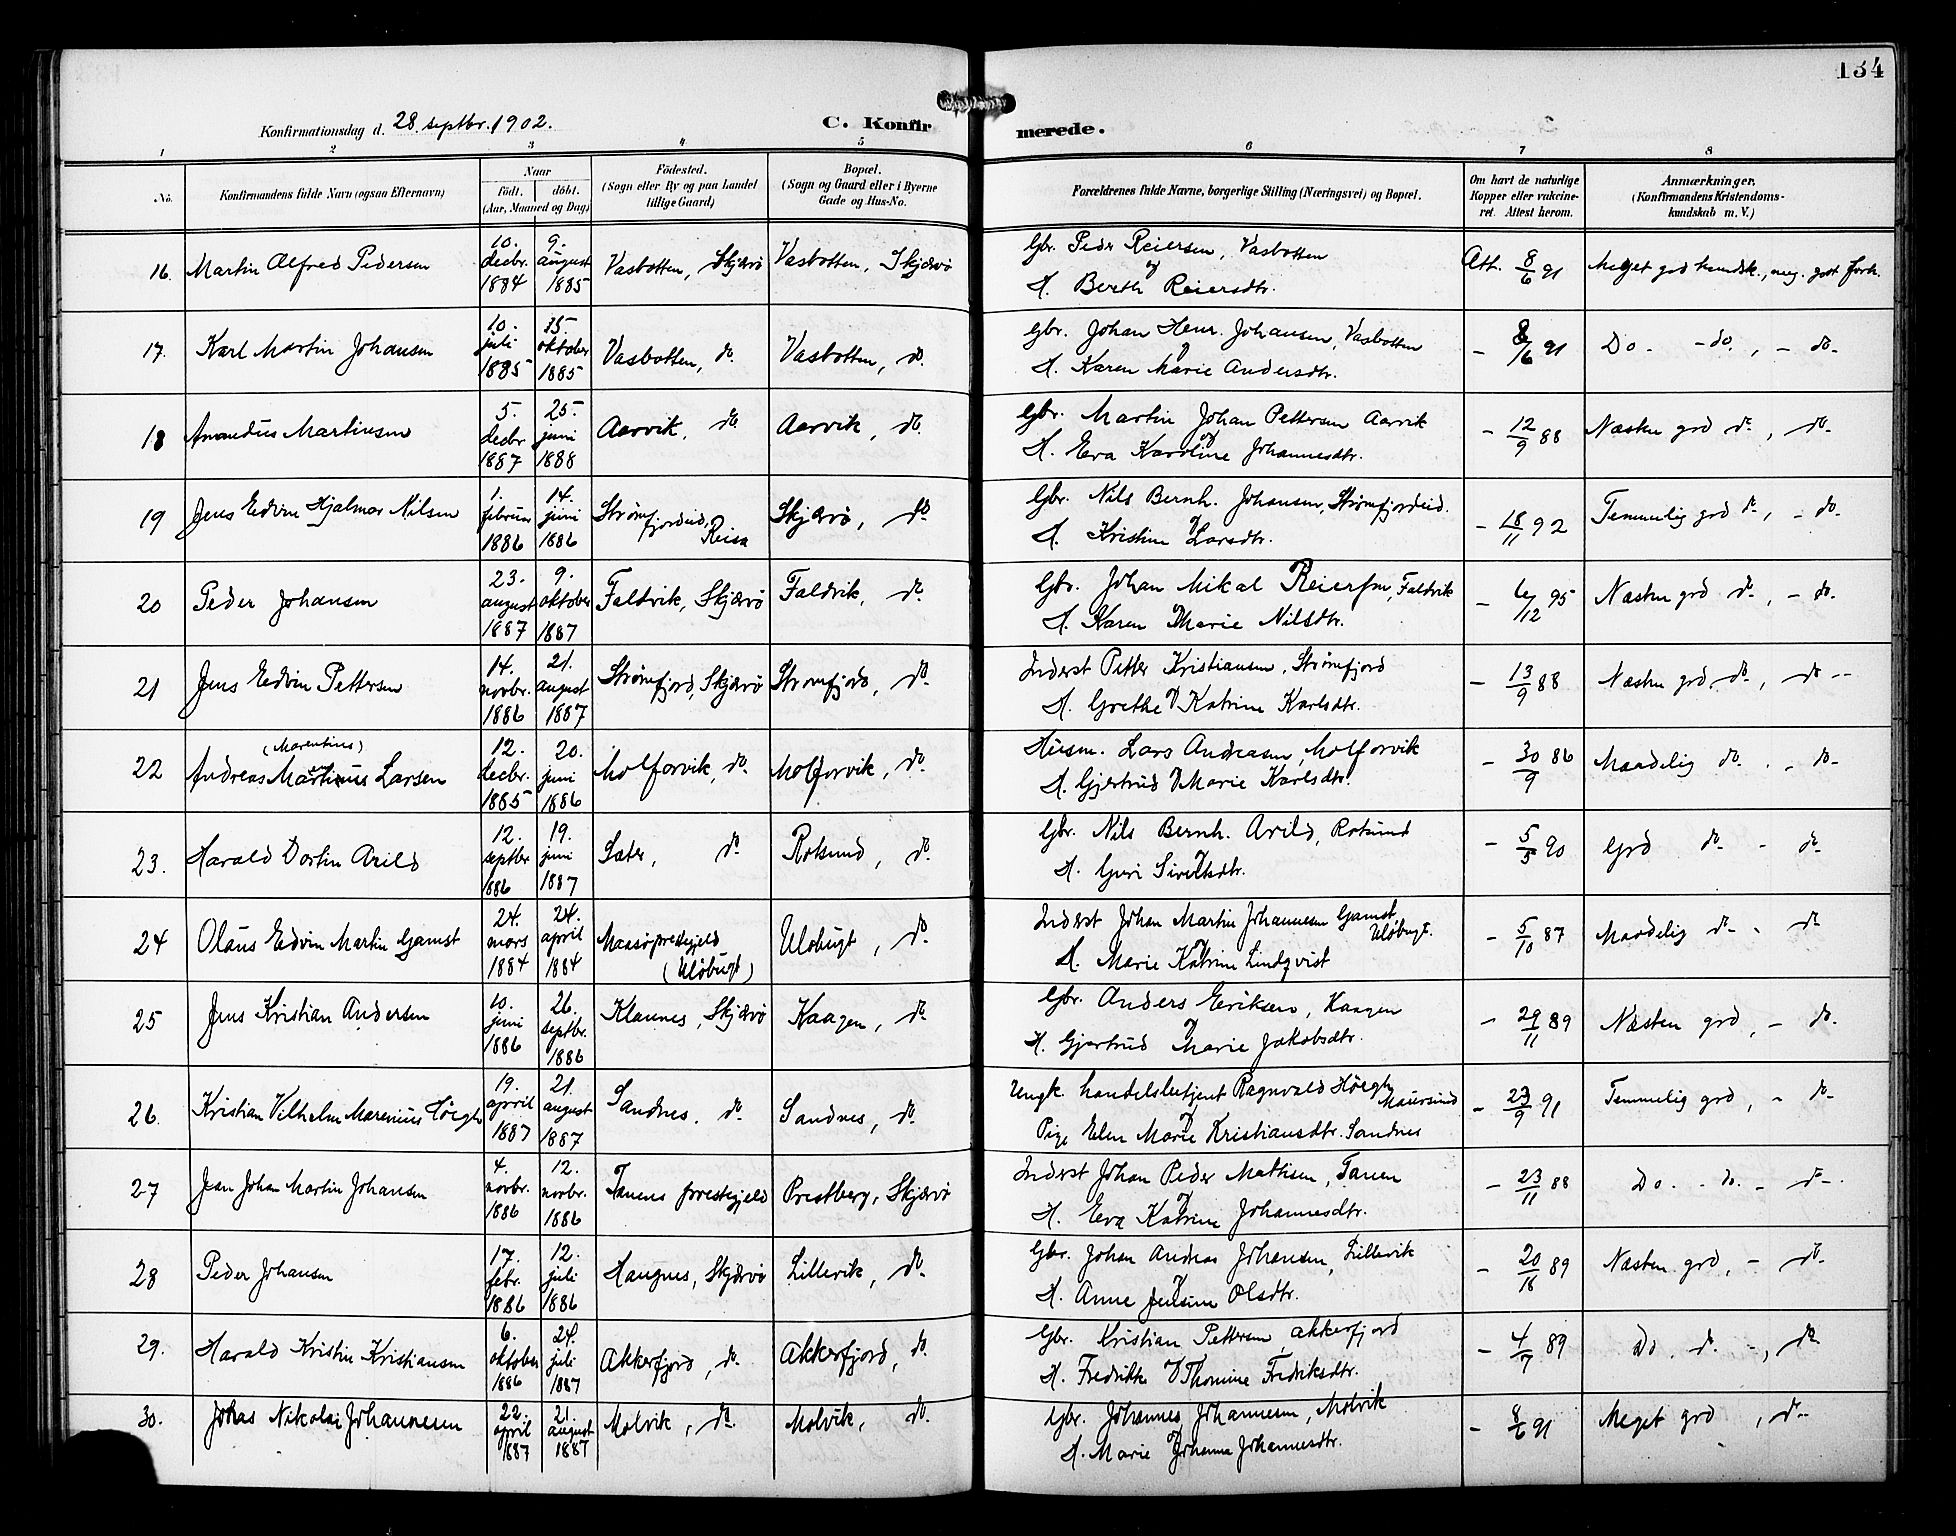 134
Konfirmationsdag d. 28. septbr. 1902.
C. Konfirmerede.
1 2 3 4 5 6 7 8
No.
Konfirmandens fulde Navn (ogsaa Efternavn)
Naar
født. døbt.
(Aar, Maaned og Dag)
Födested.
(Sogn eller By og paa Landet
tillige Gaard)
Bopæl.
(Sogn og Gaard eller i Byerne
Gade og Hus-No.
Forældrenes fulde Navne, borgerlige Stilling (Næringsvei) og Bopæl.
Om havt de naturlige
Kopper eller vakcine-
ret. Attest herom.
Anmærkninger.
(Konfirmandens Kristendoms-
kundskab m. V.)
16. Martin Alfred Pedersen
10. decbr. 1884
9. august 1885
Vasbotten, Skjærvö
Vasbotten, Skjærvö
Gbr. Peder Reiersen, Vasbotten
og
H. Bereth Reiersdtr.
Att. 8/6 91
Meget god kundsk., meg. godt forh.
17. Karl Martin Johansen
10. juli 1885
oktober 1885
Vasbotten, do.
Vasbotten, do.
Gbr. Johan Henr. Johansen, Vasbotten
H. Karen Marie Andersdtr.
- 8/6 91
Do - do., - do-
18 Amandus Martinsen
5. decbr 1887
25. juni 1888
Aarvik, do.
Aarvik, do.
Gbr. Martin Johan Pettersen Aarvik
og
H. Eva Karoline Johannesdtr.
- 12/9 88
Næsten god do., do-
19 Jens Edvin Hjalmar Nilsen
1. februar 1886
14. juni 1886
Strømfjordeid, Reisa
Skjærvö, do-
Gbr. Nils Bernh. Johansen, Strømfjordeid.
H. Kristine Larsdtr.
- 18/11 92
Temmelig god do-, - do-
20 Peder Johansen
23. august 1887
9. oktober 1887
Faldvik, Skjærvö
Faldvik, do-
Gbr. Johan Mikal Reiersen, Faldvik
H. Karen Marie Nilsdtr.
- 6/12 95
Næsten god do-, - do-
21 Jens Edvin Pettersen
14. novbr. 1886
21. august 1887
Strømfjord, Skjærvö
Strømfjord, do-
Inderst Petter Kristiansen, Strømfjord
H. Grethe Katrine Karlsdtr.
- 13/9 88
Næsten god, do-, do--
22 Andreas Martinus Larsen
(Marentius)
12. decbr. 1885
20. juni 1886
Molforvik, do-
Molforvik, do-
Husm. Lars Andreasen, Molforvik
H. Gjertrud Marie Karlsdtr.
- 30/9 86
Maadelig do. - do-
23. Harald Dortin Arild
12. septbr 1886
19. juni 1887
Sæter, do-
Rotsund, do-
Gbr. Nils Bernh. Arild, Rotsund
H. Guri Siversdtr.
- 5/5 90
God do- - do-
24 Olaus Edvin Martin Gamst
24. mars 1884
24. april 1884
Maasö prestegjeld
(Ulöbugt)
Ulöbugt, do-
Inderst Johan Martin Johannesen Gamst, Ulöbugt.
H. Marie Katrine Lindqvist
- 5/10 87
Maadelig do- - do-
25 Jens Kristian Andersen
10. juni 1886
26. septbr. 1886
Klaunes, Skjærvö
Kaagen, do-
Gbr. Anders Eriksen, Kaagen
H. Gjertrud Marie Jakobsdtr.
- 29/11 89
Næsten god, - do-
26. Kristian Vilhelm Marenius Høegh
19. april 1887
21. august 1887
Sandnes, do-
Sandnes, do-
Ungk. handelsbetjent Ragnvald Høegh, Maursund
Pige Elen Marie Kristiansdtr. Sandnes
- 23/9 91
Temmelig god, - do-
27 Jean Johan Martin Johansen
4. novbr. 1886
12. novbr. 1886
Tanens prestegjeld
Prestberg, Skjærvö
Inderst Johan Peder Mathisen, Tanen
H. Eva Katrine Johannesdtr.
- 23/11 88
Do. - do. - do-
28 Peder Johansen
17. febr. 1886
12. juli 1886
Haugnes, Skjærvö
Lillevik, do-
Gbr. Johan Andreas Johansen, Lillevik
H. Anne Julsine Olsdtr.
89
Næsten god, - do-
29. Harald Kristin Kristiansen
6. oktober 1886
24. juli 1887
Akkerfjord, do-
Akkerfjord, do-
Gbr. Kristian Pettersen, Akkerfjord
H. Fredrikke Thomine Fredriksdtr.
- 4/7 89
Do. do. -, do-
30. Johas Nikolai Johannesen
22. april 1887
21. august 1887
Molvik, do-
Molvik, do-
Gbr. Johannes Johannesen, Molvik
og
H. Marie Johanna Johannesdtr.
- 8/6 91
Meget god, do-